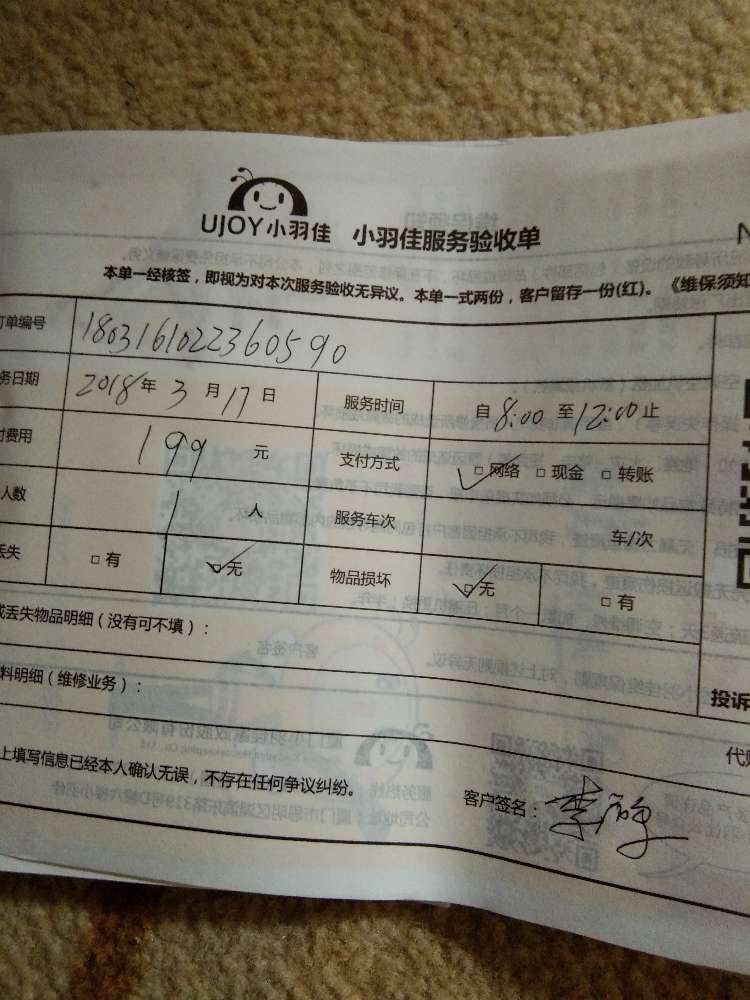 UJOY小羽佳 小羽佳服务验收单
N
本单一经核签，即视为对本次服务验收无异议。本单一式两份，客户留存一份(红)。《维保须知
订单编号 1803161022360590
务日期 2018年3月17日 服务时间 自8:00至12:00止
付费用 199 元 支付方式 □网络 □现金 □转账
人数 1 人 服务车次 车/次
丢失 □有 □无 物品损坏 □无 □有
或丢失物品明细（没有可不填）：
料明细（维修业务）：
投诉
上填写信息已经本人确认无误，不存在任何争议纠纷。
客户签名：